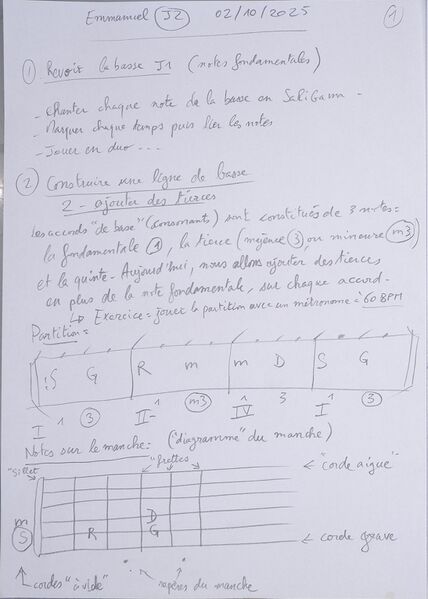 Emmanuel J2 02/10/2025 1
1 Revoir la basse J1 (notes fondamentales)
- Chanter chaque note de la basse en SaRiGaMa -
- Marquer chaque temps puis lier les notes
- Jouer en duo ...
2 Construire une ligne de basse
2 - ajouter des tierces
Les accords "de base" (consonants) sont constitués de 3 notes =
la fondamentale 1, la tierce (majeure 3) ou mineure m3)
et la quinte - Aujourd'hui, nous allons ajouter des tierces
en plus de la note fondamentale, sur chaque accord -
↳ Exercice = jouer la partition avec un métronome à 60 BPM
Partition =
S G R m m D S G
I 1 3 II- 1 m3 IV 1 3 I 1 3
Notes sur le manche: ("diagramme" du manche)
"sillet" "frettes" "corde aigue"
m D
S R G corde grave
cordes "à vide" repères du manche